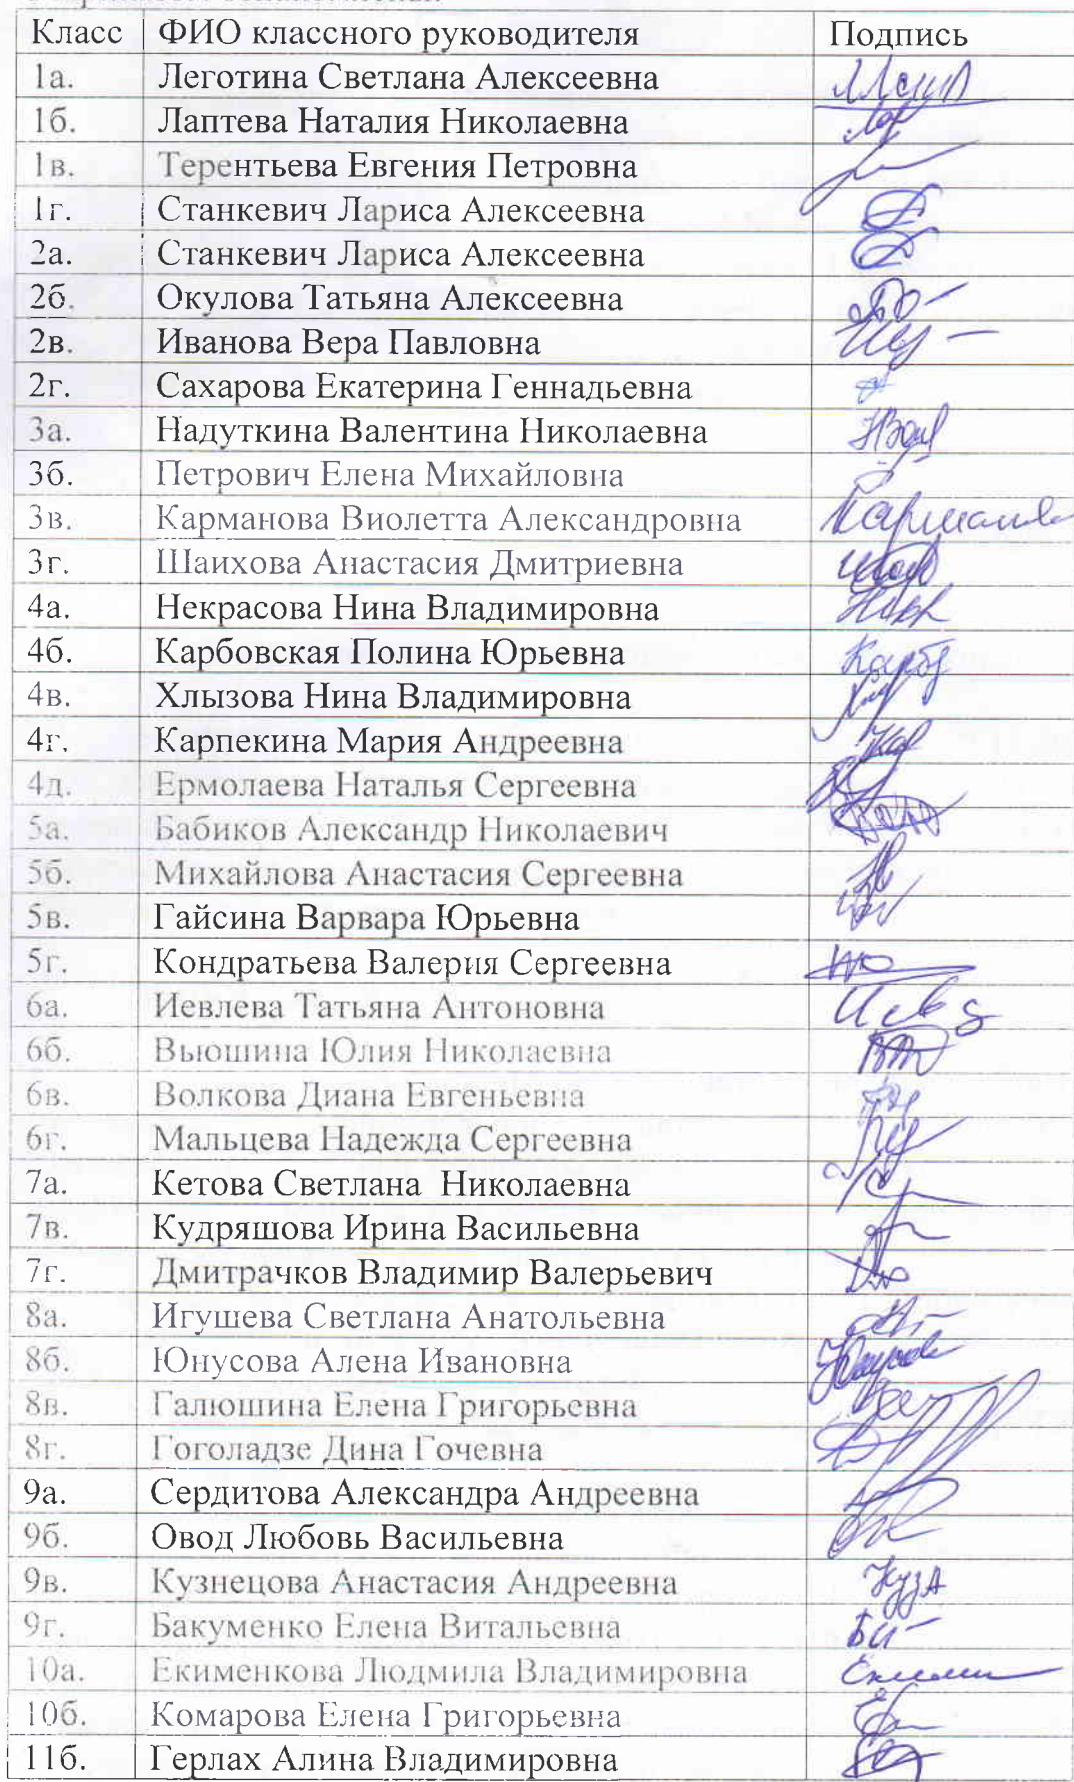 Класс ФИО классного руководителя Подпись
1а. Леготина Светлана Алексеевна
1б. Лаптева Наталия Николаевна
1в. Терентьева Евгения Петровна
1г. Станкевич Лариса Алексеевна
2а. Станкевич Лариса Алексеевна
2б. Окулова Татьяна Алексеевна
2в. Иванова Вера Павловна
2г. Сахарова Екатерина Геннадьевна
3а. Надуткина Валентина Николаевна
3б. Петрович Елена Михайловна
3в. Карманова Виолетта Александровна
3г. Шаихова Анастасия Дмитриевна
4а. Некрасова Нина Владимировна
4б. Карбовская Полина Юрьевна
4в. Хлызова Нина Владимировна
4г. Карпекина Мария Андреевна
4д. Ермолаева Наталья Сергеевна
5а. Бабиков Александр Николаевич
5б. Михайлова Анастасия Сергеевна
5в. Гайсина Варвара Юрьевна
5г. Кондратьева Валерия Сергеевна
6а. Иевлева Татьяна Антоновна
6б. Вьюшина Юлия Николаевна
6в. Волкова Диана Евгеньевна
6г. Мальцева Надежда Сергеевна
7а. Кетова Светлана Николаевна
7в. Кудряшова Ирина Васильевна
7г. Дмитрачков Владимир Валерьевич
8а. Игушева Светлана Анатольевна
8б. Юнусова Алена Ивановна
8в. Галюшина Елена Григорьевна
8г. Гоголадзе Дина Гочевна
9а. Сердитова Александра Андреевна
9б. Овод Любовь Васильевна
9в. Кузнецова Анастасия Андреевна
9г. Бакуменко Елена Витальевна
10а. Екименкова Людмила Владимировна
10б. Комарова Елена Григорьевна
11б. Герлах Алина Владимировна